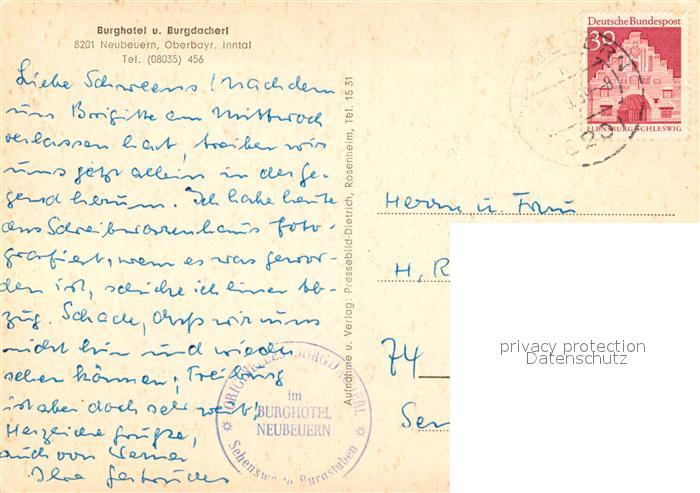 Burghotel u. Burgdacherl
8201 Neubeuern, Oberbayr. Inntal
Tel. (08035) 456
Liebe Schweens! Nachdem
uns Brigitte am Mittwoch
verlassen hat, treiben wir
uns jetzt allein in der Ge-
gend herum. Ich habe heute
das Schreibwarenhaus foto-
grafiert, wenn es was gewor-
den ist, schicke ich Ihnen Ab-
zug. Schade, daß wir uns
nicht hin und wieder
sehen können; Freiburg
ist aber doch sehr weit!
Herzliche Grüße,
auch von Werner
Ihre Gertrudes
Aufnahme u. Verlag: Pressebild-Dietrich, Rosenheim, Tel. 15 31
Deutsche Bundespost
30
FLENSBURG/SCHLESWIG
8201
Herrn u. Frau
H. R
74
im
BURGHOTEL
NEUBEUERN
privacy protection
Datenschutz